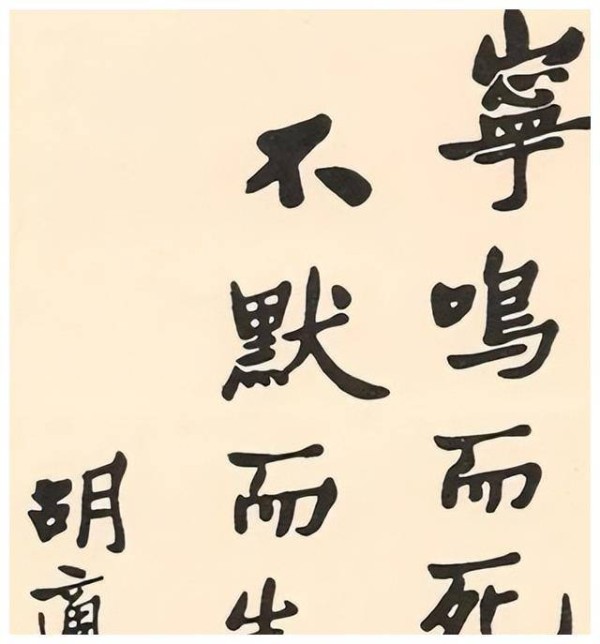 寧鳴而死
不默而生
胡適